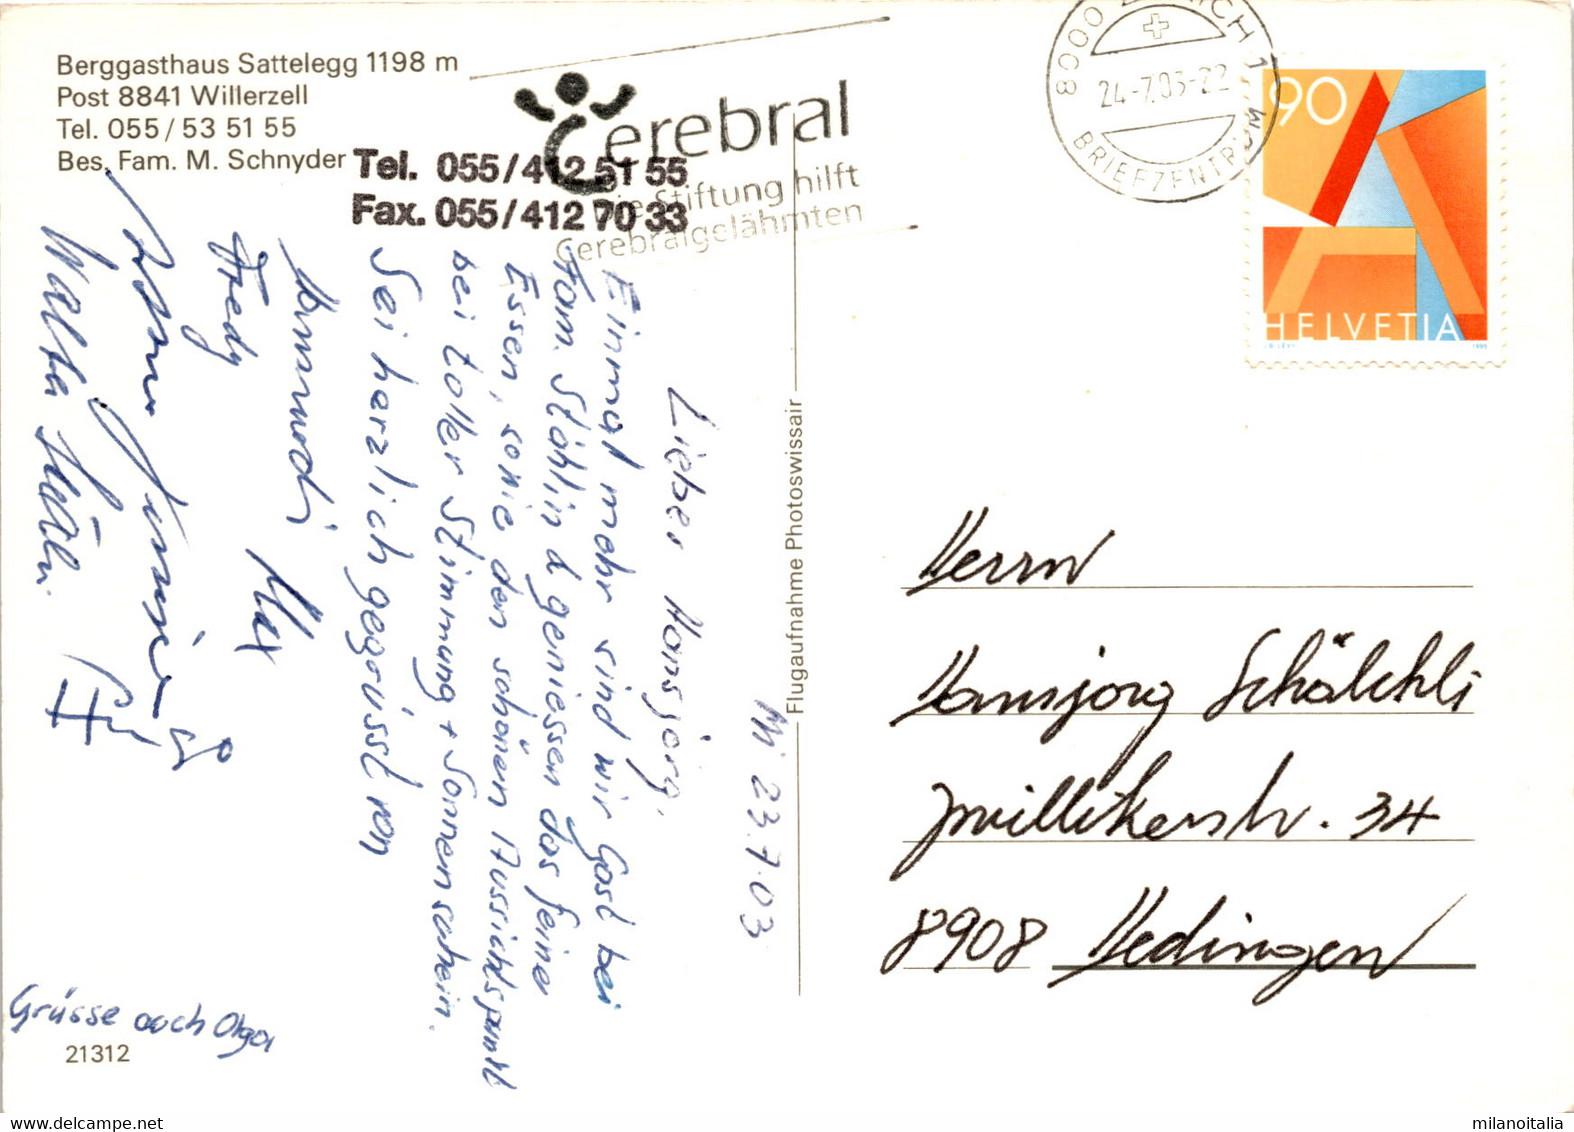 Berggasthaus Sattelegg 1198 m
Post 8841 Willerzell
Tel. 055/53 51 55
Bes. Fam. M. Schnyder
Tel. 055/412 51 55
Fax. 055/412 70 33
Cerebral
Die Stiftung hilft
Cerebralgelähmten
8000 ZÜRICH 1
24-7.03-22
BRIEFZENTRUM
90
HELVETIA
1995
Mi 23.7.03
Lieber Hansjörg,
Einmal mehr sind wir Gast bei
Fam. Stählin & geniessen das feine
Essen, sowie den schönen Aussichtspunkt
bei toller Stimmung + Sonnenschein.
Sei herzlich gegrüsst von
Max
Fredy
Grüsse auch Olga
21312
Flugaufnahme Photoswissair
Herrn
Hansjörg Schälchli
Zwillikerstr. 34
8908 Hedingen
milanoitalia